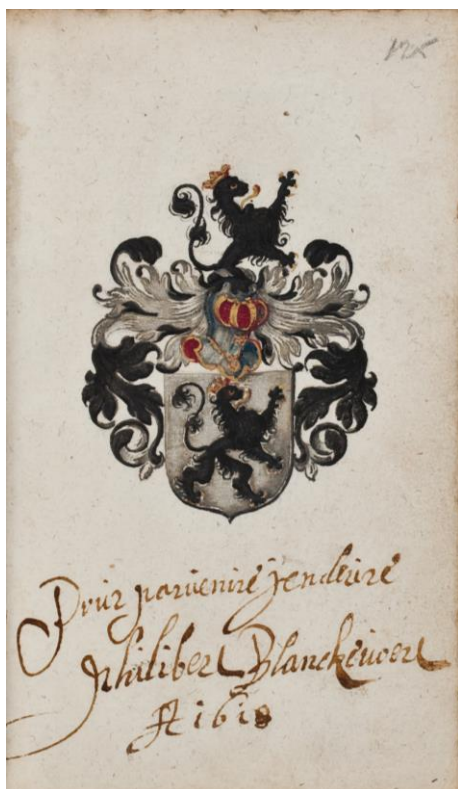 125
Pour parvenire j'endeure
philibert Blanckevoert
A 1618